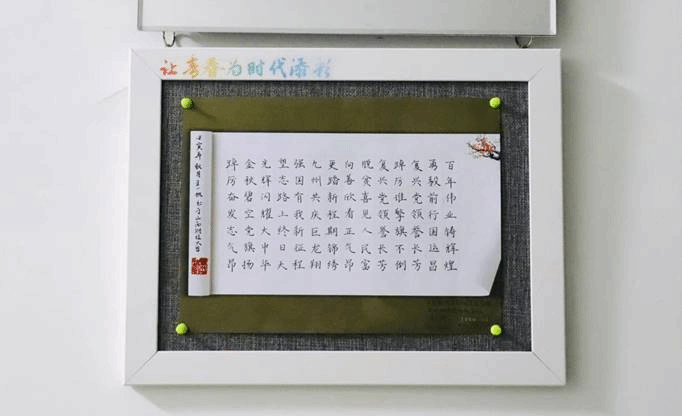 让青春为时代添彩
百年伟业铸辉煌
勇毅前行国运昌
复兴党领誉长芳
踔厉谁擎旗不倒
复兴党领誉长芳
脱贫喜见人民富
向善欣看正气昂
更踏新程期锦绣
九州共庆巨龙翔
强国有我新征程
望志路上终日天
光辉闪耀大中华
金秋碧空党旗扬
踔厉奋发志气昂
壬寅年秋月